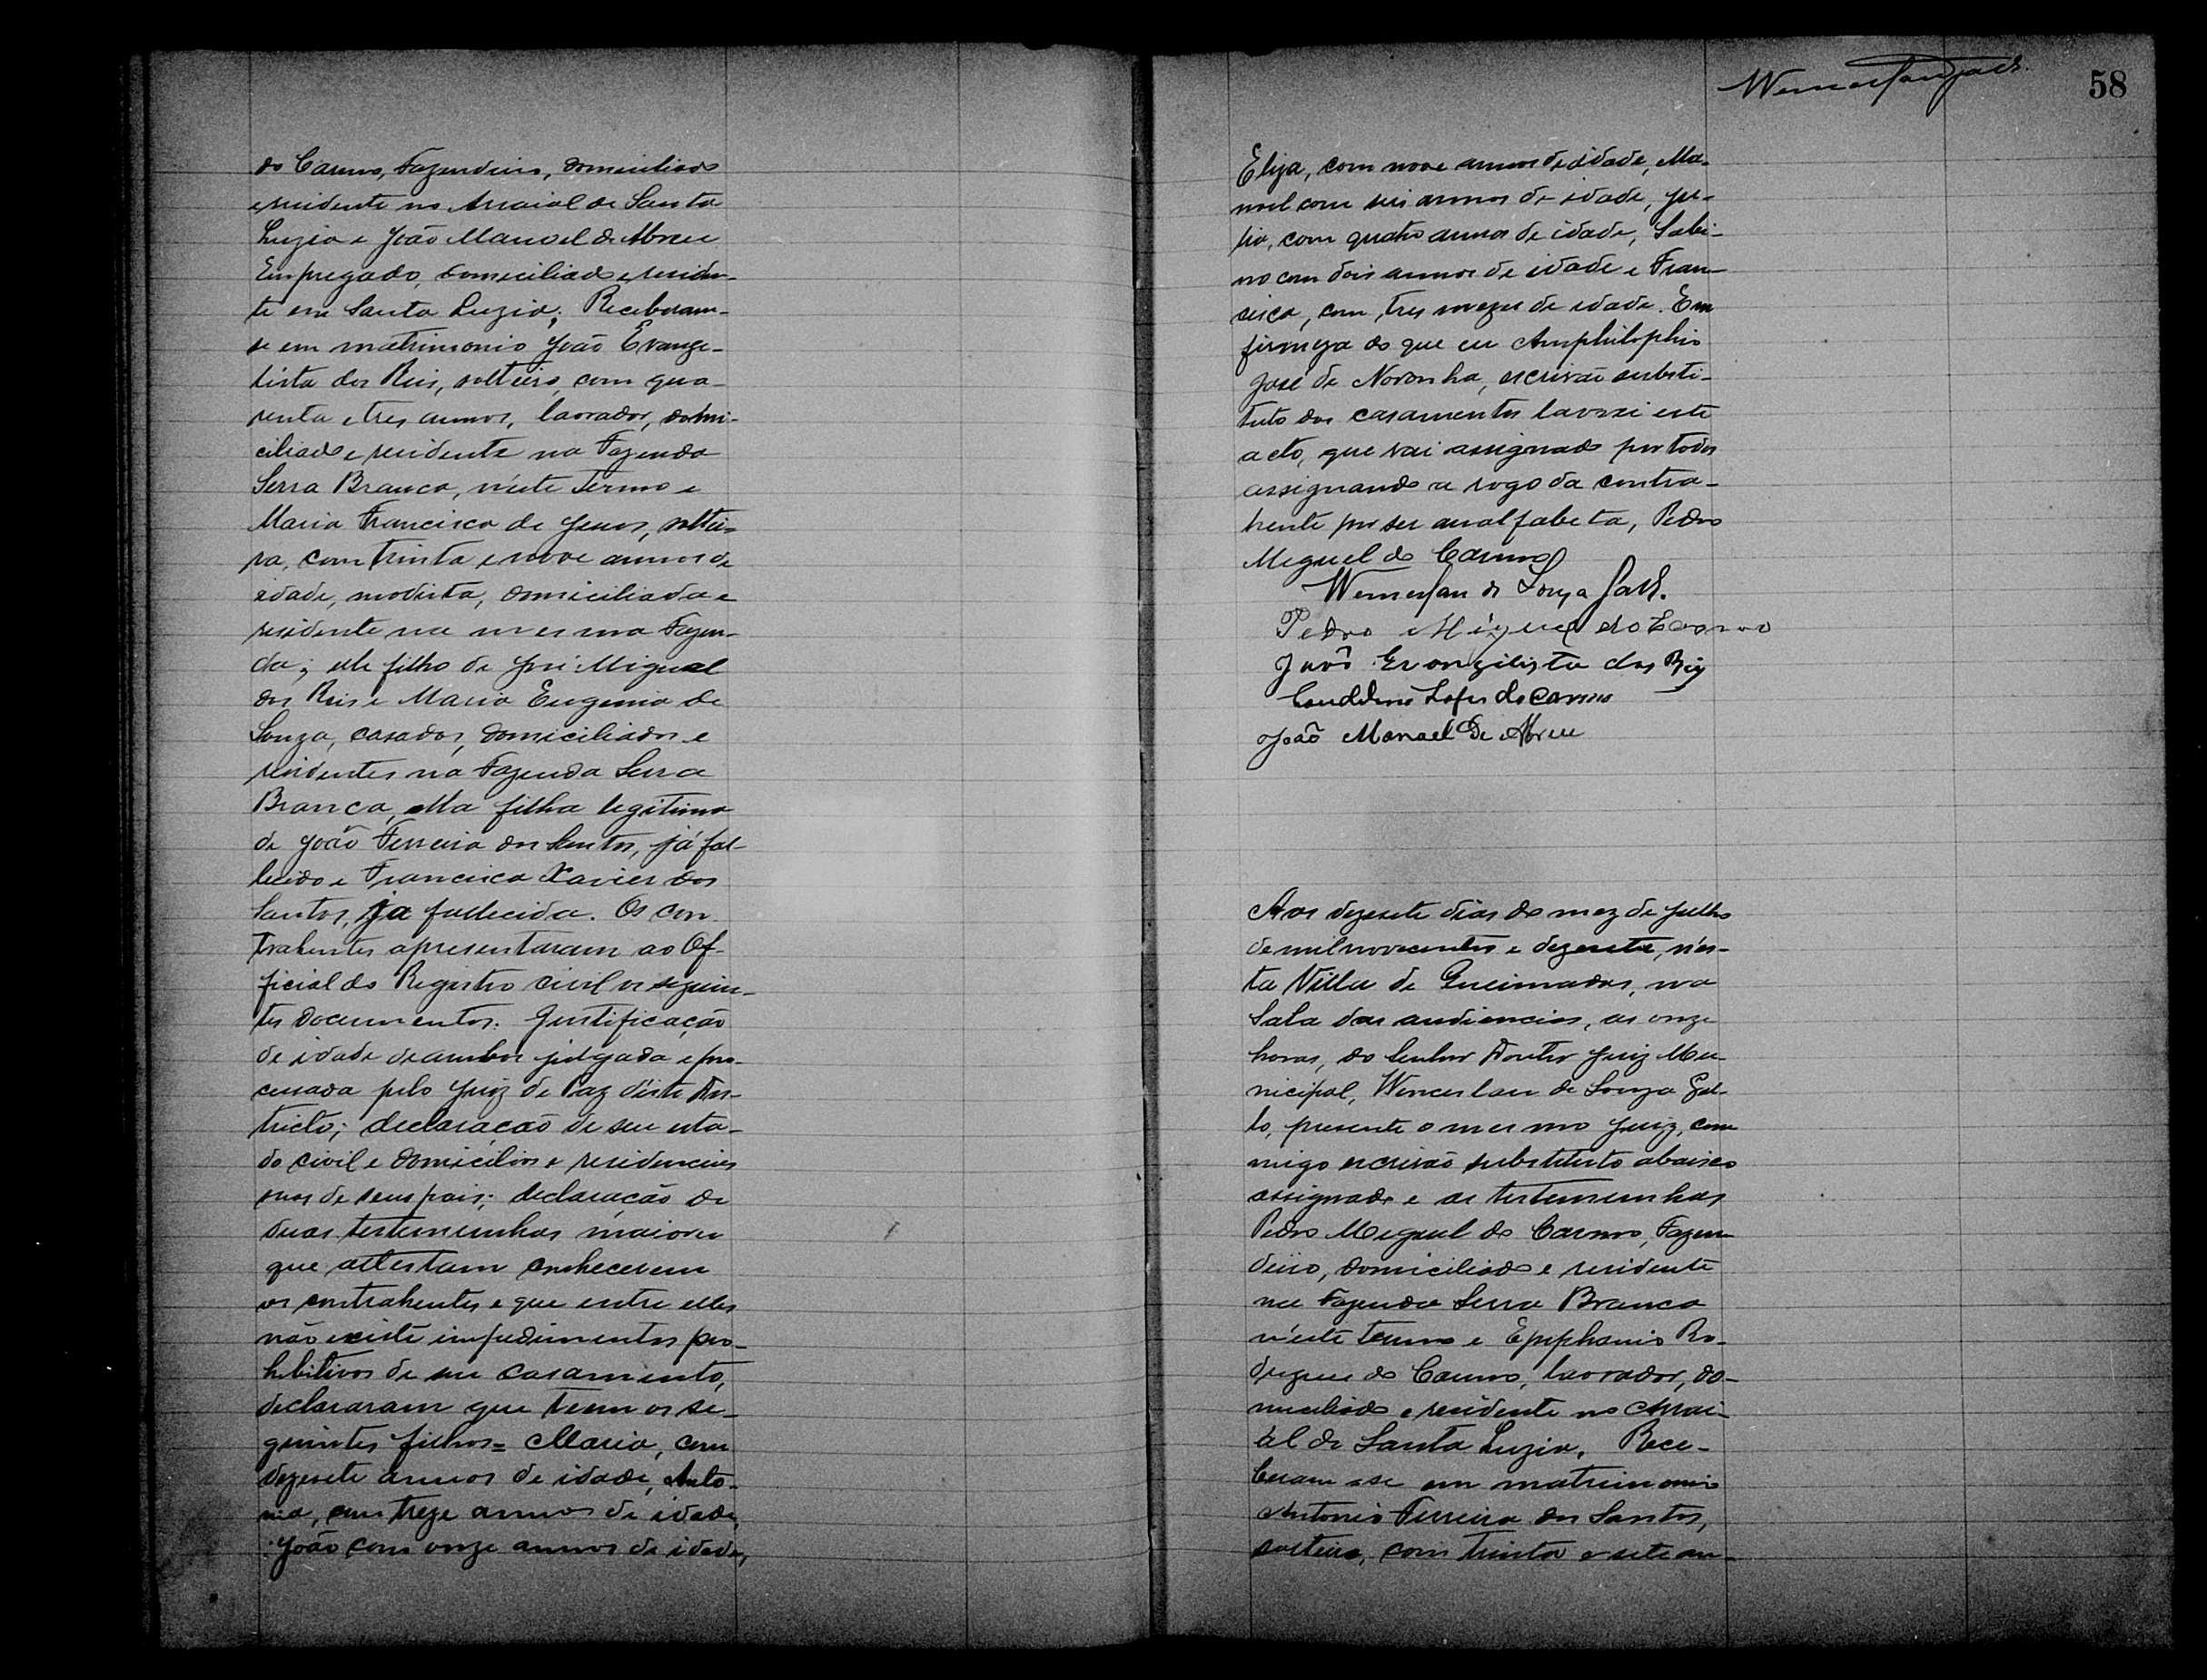 do Carmo, Fazendeiro, domiciliado
e residente no Arraial de Santa
Luzia e João Manoel de Abreu
Empregado, domiciliado e residen-
te em Santa Luzia; Receberam-
se em matrimonio João Evange-
lista dos Reis, solteiro, com qua-
renta e tres annos, lavrador, domi-
ciliado e residente na Fazenda
Serra Branca, n'este Termo e
Maria Francisca de Jesus, soltei-
ra, com trinta e nove annos de
idade, modista, domiciliada e
residente na mesma Fazen-
da; elle filho de José Miguel
dos Reis e Maria Eugenia de
Souza, casados, domiciliados e
residentes na Fazenda Serra
Branca, ella filha legitima
de João Ferreira dos Santos, já fal-
lecido e Francisca Xavier dos
Santos, já fallecida. Os con-
trahentes apresentaram ao Of-
ficial do Registro civil os seguin-
tes documentos: Justificação
de idade de ambos julgada e pro-
cessada pelo Juiz de Paz d'este Dis-
tricto; declaração de seu esta-
do civil e domicilios e residencias
suas de seus pais; declaração de
duas testemunhas maiores
que attestam conhecerem
os contrahentes e que entre elles
não existe impedimentos pro-
hibitivos de seu casamento,
declararam que teem os se-
guintes filhos = Maria, com
dezesete annos de idade, Anto-
nia, com treze annos de idade,
João com onze annos de idade,
58
Eliza, com nove annos de idade, Ma-
noel com seis annos de idade, Ju-
lia, com quatro annos de idade, Sabi-
no com dois annos de idade e Fran-
cisca, com tres mezes de idade. Em
firmeza do que eu Amphilophio
José de Noronha, escrivão substi-
tuto dos casamentos lavrei este
acto, que vai assignado por todos
assignando a rogo da contra-
hente por ser analfabeta, Pedro
Miguel do Carmo
Wenceslau de Souza Gallo.
Pedro Miguel do Carmo
João Evangilista dos Reis
Lopes do Carmo
João Manoel De Abreu
Aos dezesete dias do mez de Julho
de mil novecentos e dezesete, n'es-
ta Villa de Queimadas, na
Sala das audiencias, as onze
horas, do Senhor Doutor Juiz Mu-
nicipal, Wenceslau de Souza Gal-
lo, presente o mesmo Juiz, com
migo escrivão substituto abaixo
assignado e as testemunhas
Pedro Miguel do Carmo, Fazen-
deiro, domiciliado e residente
na Fazenda Serra Branca
n'este termo e Epiphanio Ro-
drigues do Carmo, lavrador, do-
miciliado e residente no Arrai-
al de Santa Luzia. Rece-
beram-se em matrimonio
Antonio Ferreira dos Santos,
solteiro, com trinta e sete an-